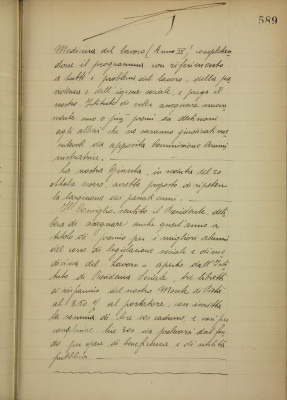 589
Medicina del lavoro (Anno IV) completan-
done il programma con riferimento
a tutti i problemi del lavoro, della pre
videnza e dell'igiene sociale, e prega il
nostro Istituto di voler assegnare nuova
mente uno o più premi da destinarsi
agli allievi che ne saranno giudicati me
ritevoli da apposita Commissione Ammi
nistratrice. —
La nostra Giunta, in seduta del 20
ottobre scorso, avrebbe proposto di ripetere
la largizione dei passati anni. —
Il Consiglio, sentito il Presidente, deli
bera di assegnare anche quest'anno a
titolo di premio pei migliori alunni
del corso di legislazione sociale e di me
dicina del lavoro - aperto dall'Isti
tuto di Previdenza Sociale tre libretti
di risparmio del nostro Monte di Pietà
al 3.50 % al portatore con iscritta
la somma di lire cadauno, e così per
complessive lire 300 da prelevarsi dal fon
do per opere di beneficenza e di utilità
pubblica. —